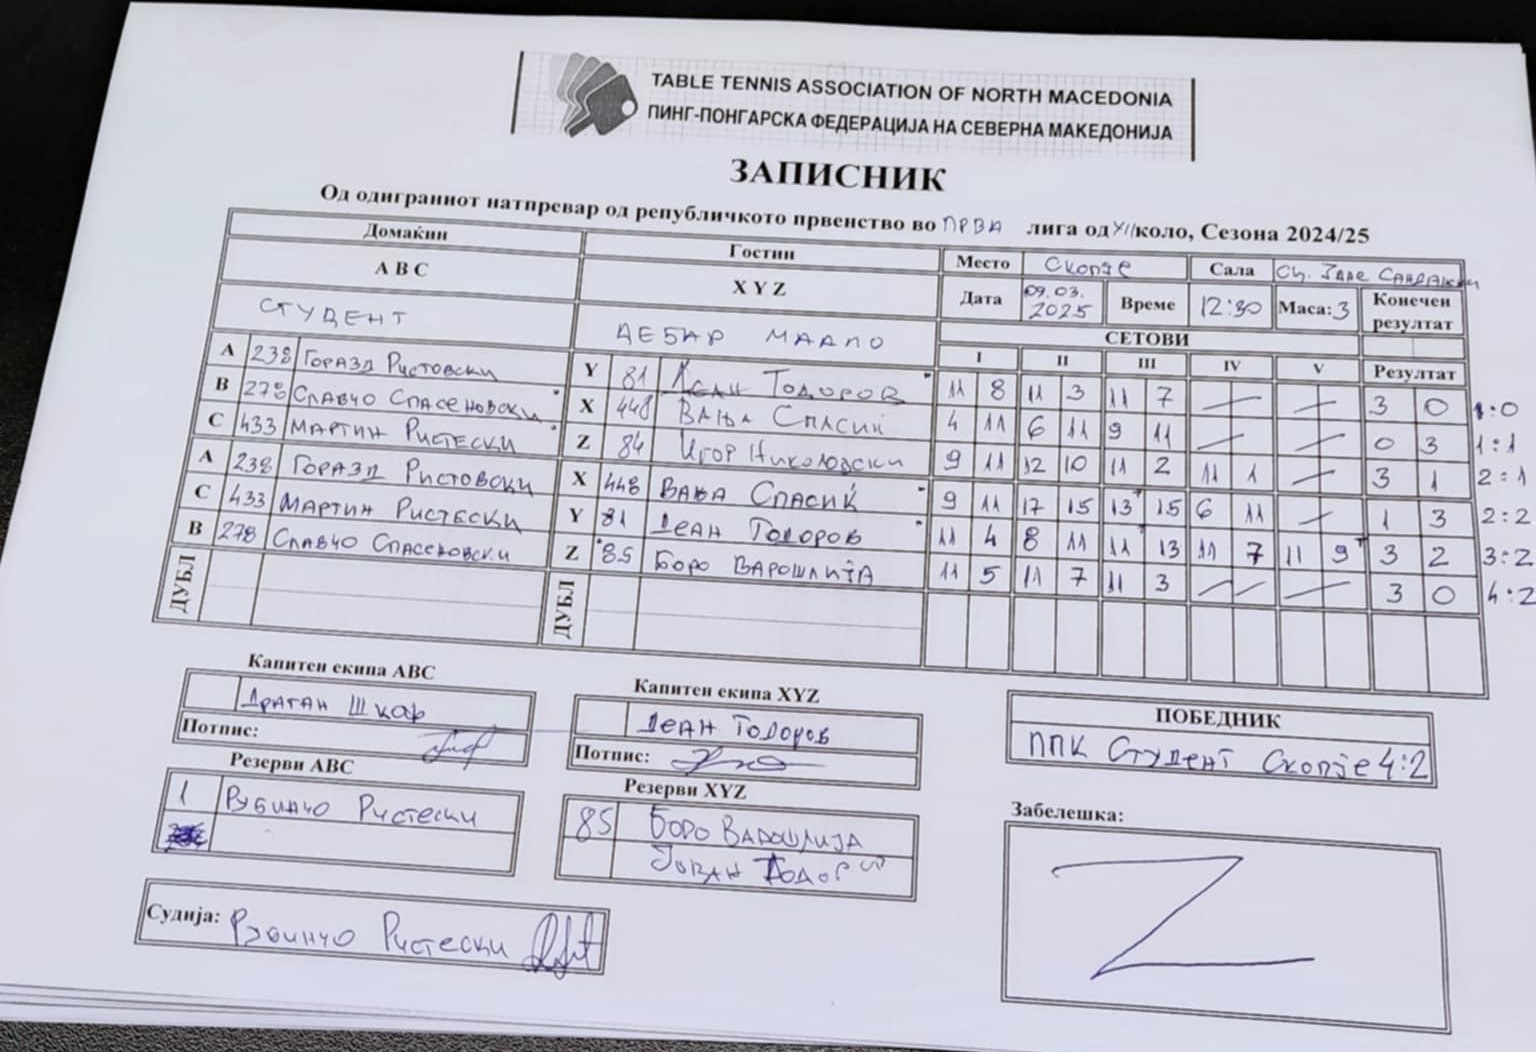 TABLE TENNIS ASSOCIATION OF NORTH MACEDONIA
ПИНГ-ПОНГАРСКА ФЕДЕРАЦИЈА НА СЕВЕРНА МАКЕДОНИЈА
ЗАПИСНИК
Од одиграниот натпревар од републичкото првенство во ПРВА лига од XII коло, Сезона 2024/25
Домаќин Гостин Место Скопје Сала Сц. Јане Сандански
A B C X Y Z Дата 09.03. 2025 Време 12:30 Маса: 3 Конечен резултат
СТУДЕНТ ДЕБАР МААЛО СЕТОВИ
I II III IV V Резултат
A 238 Горазд Ристовски Y 81 Деан Тодоров 11 8 11 3 11 7 3 0 1:0
B 278 Славчо Спасеновски X 448 Вања Спасиќ 4 11 6 11 9 11 0 3 1:1
C 433 Мартин Ристески Z 84 Игор Николовски 9 11 12 10 11 2 11 1 3 1 2:1
A 238 Горазд Ристовски X 448 Вања Спасиќ 9 11 17 15 13 15 6 11 1 3 2:2
C 433 Мартин Ристески Y 81 Деан Тодоров 11 4 8 11 11 13 11 7 11 9 3 2 3:2
B 278 Славчо Спасеновски Z 85 Боро Варошлија 11 5 11 7 11 3 3 0 4:2
ДУБЛ ДУБЛ
Капитен екипа ABC Капитен екипа XYZ
Драган Шкаф Деан Тодоров ПОБЕДНИК
Потпис: Потпис: ППК Студент Скопје 4:2
Резерви ABC Резерви XYZ
1 Рубинчо Ристески 85 Боро Варошлија Забелешка:
Јован Тодоров
Судија: Рубинчо Ристески